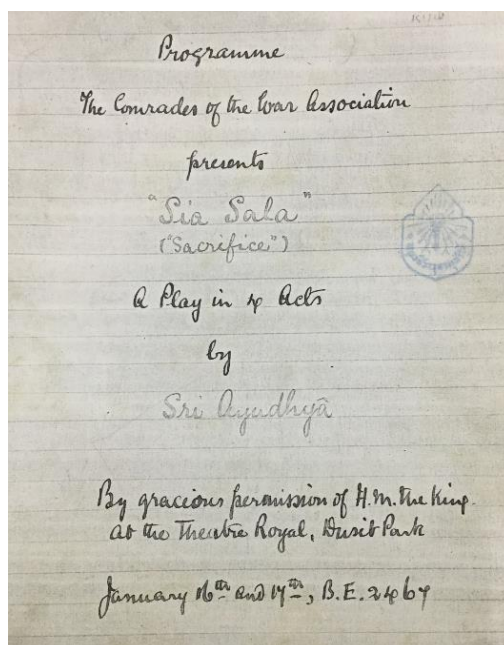 Programme
The Comrades of the War Association
presents
"Sia Sala"
("Sacrifice")
A Play in 4 Acts
by
Sri Ayudhyā
By gracious permission of H.M. the King.
at the Theatre Royal, Dusit Park
January 16th and 17th, B.E. 2467